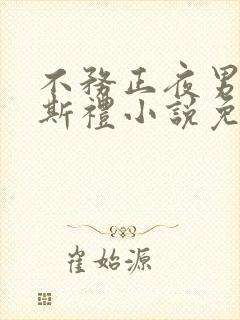 不務正夜男
斯禮小說免
崔始源